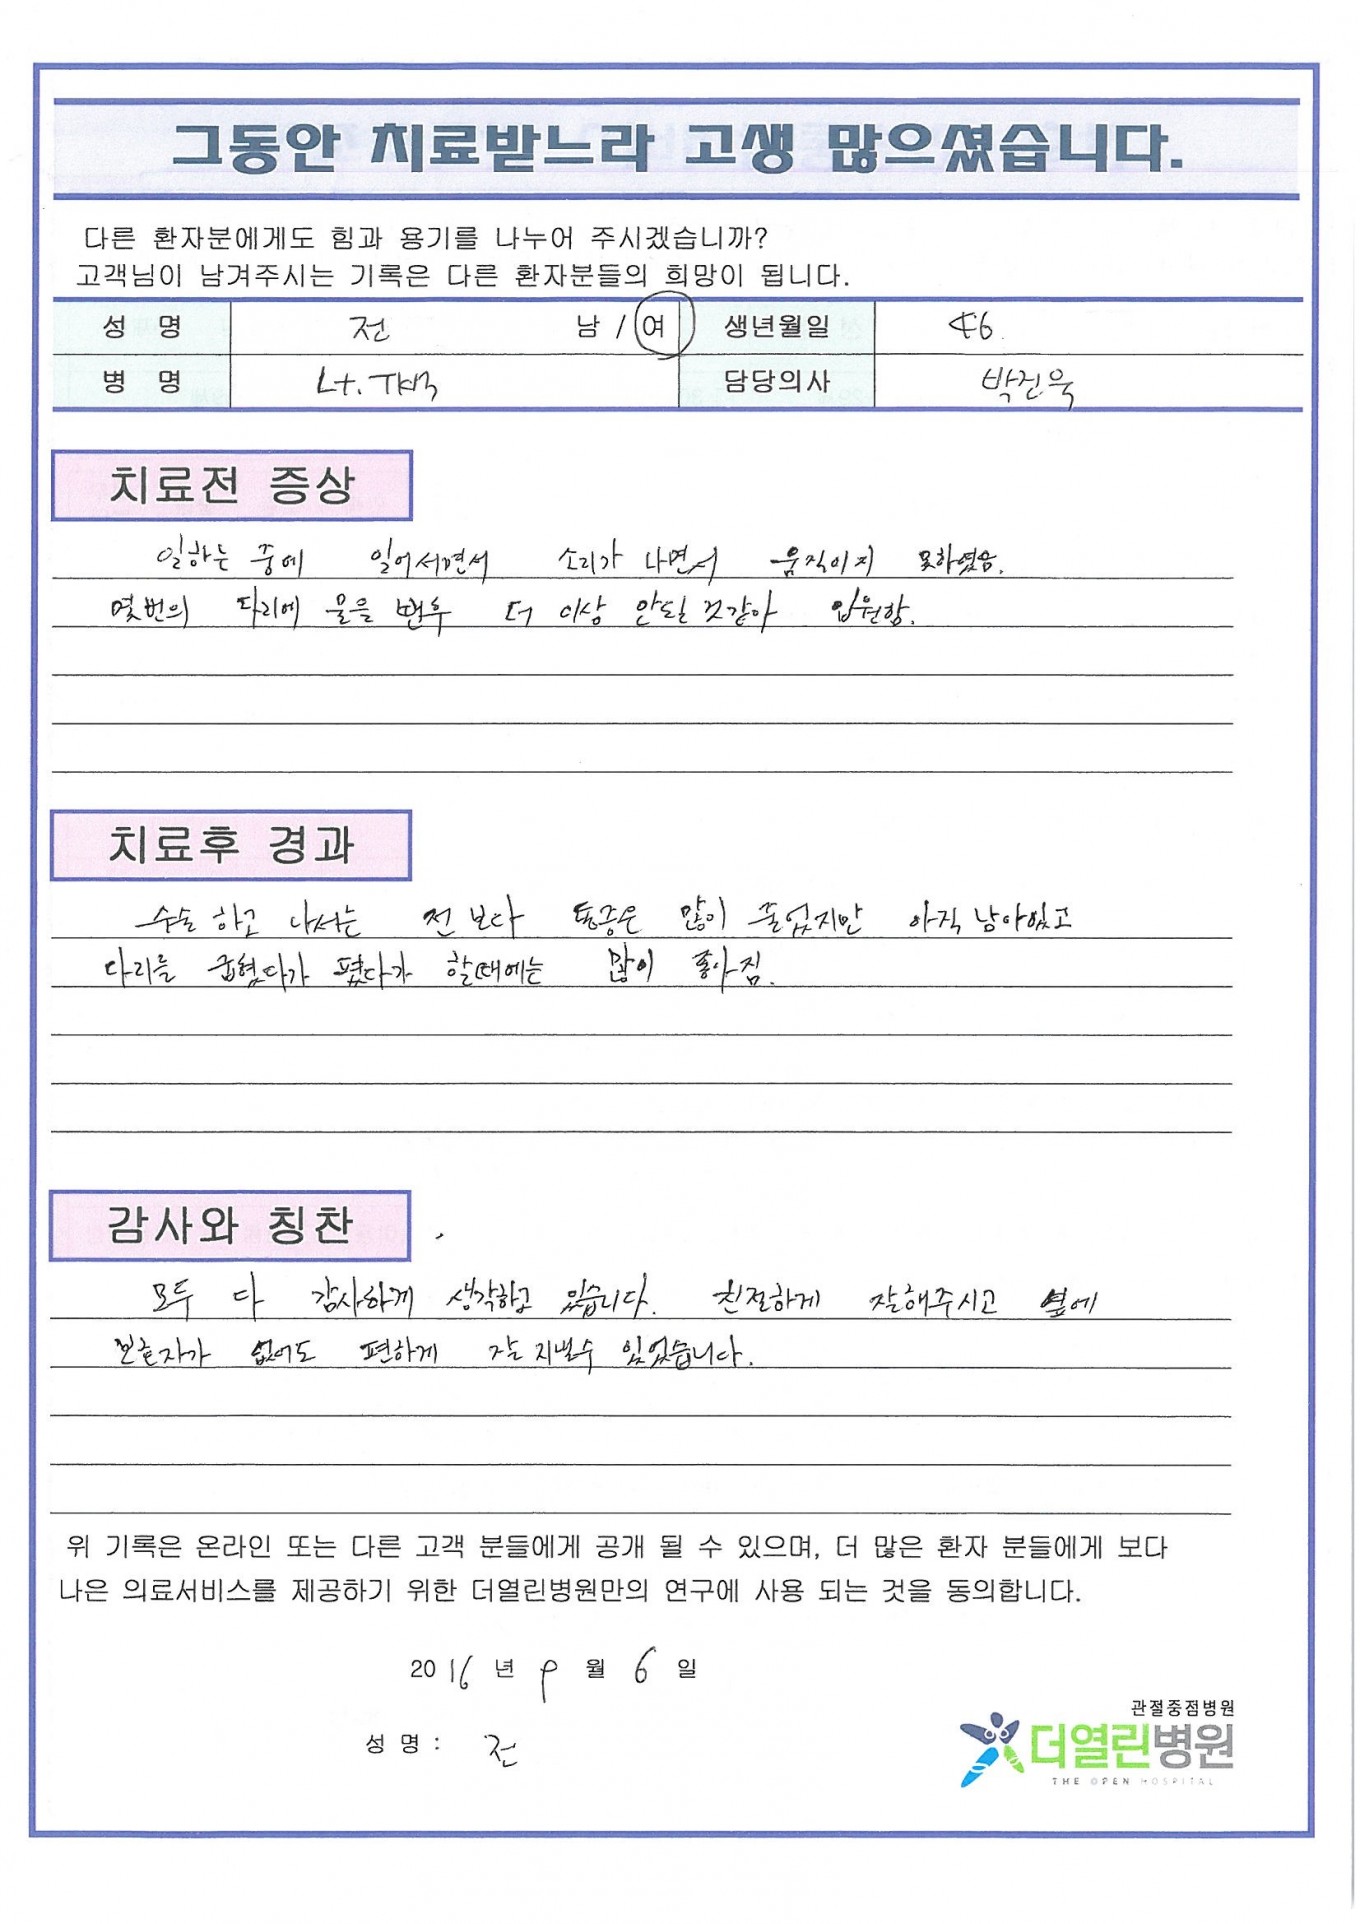 그동안 치료받느라 고생 많으셨습니다.
다른 환자분에게도 힘과 용기를 나누어 주시겠습니까?
고객님이 남겨주시는 기록은 다른 환자분들의 희망이 됩니다.
성 명 전 남 / 여 생년월일 46.
병 명 Lt. TKR 담당의사 박진욱
치료전 증상
일하는 중에 일어서면서 소리가 나면서 움직이지 못하였음.
몇번의 다리에 물을 뺀후 더 이상 안될 것같아 입원함.
치료후 경과
수술 하고 나서는 전 보다 통증은 많이 줄었지만 아직 남아있고
다리를 굽혔다가 폈다가 할때에는 많이 좋아짐.
감사와 칭찬
모두 다 감사하게 생각하고 있습니다. 친절하게 잘해주시고 옆에
보호자가 없어도 편하게 잘 지낼수 있었습니다.
위 기록은 온라인 또는 다른 고객 분들에게 공개 될 수 있으며, 더 많은 환자 분들에게 보다
나은 의료서비스를 제공하기 위한 더열린병원만의 연구에 사용 되는 것을 동의합니다.
2016 년 9 월 6 일
성 명 : 전
관절중점병원
더열린병원
THE OPEN HOSPITAL